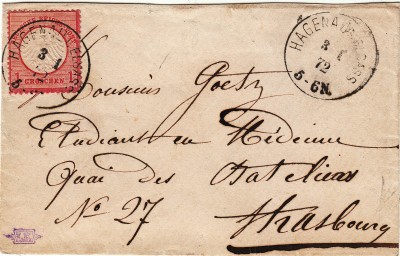 HAGENAU I. ELSASS
3 1
GROSCHEN
HAGENAU I. ELSASS
3 1
72
5-6N.
Monsieur Goetz
Etudiant en Médecine
Quai des Bateliers
No 27
Strasbourg